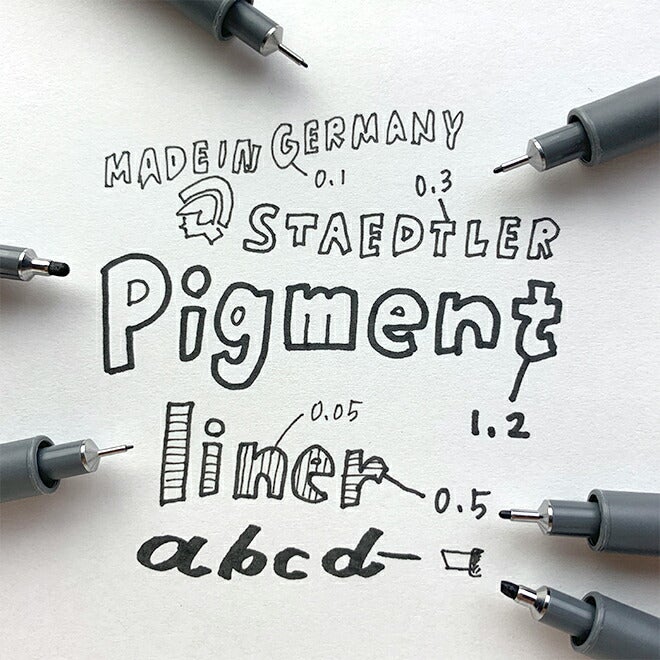 MADE IN GERMANY
0.1
0.3
STAEDTLER
Pigment
1.2
liner
0.05
0.5
abcd